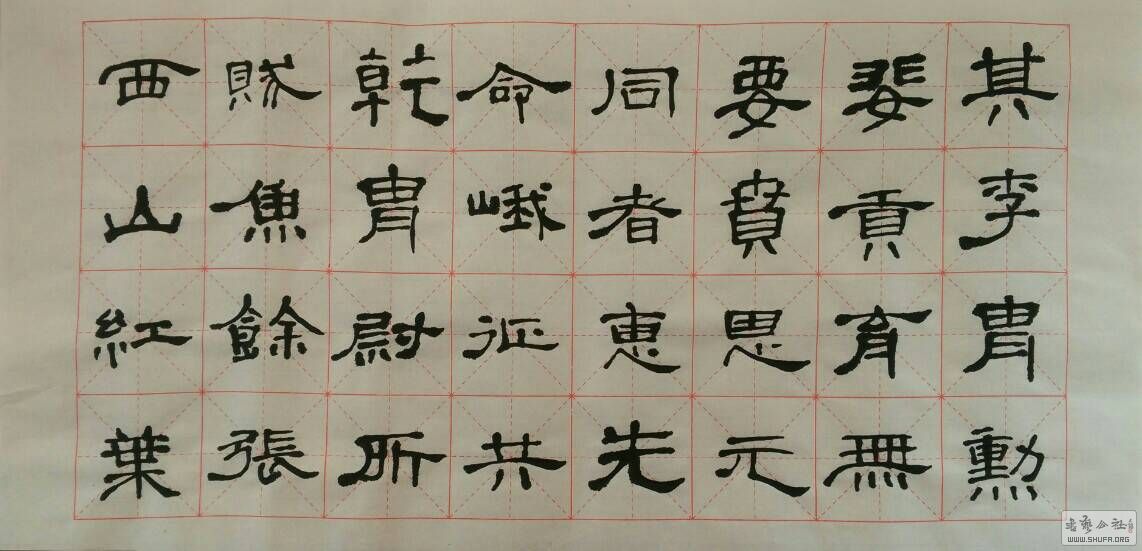 其李胄勳
婓貢育無
要賁思元
同者惠先
命峨征共
乾胄尉所
財魚餘張
西山紅葉
书艺公社
WWW.SHUFA.ORG